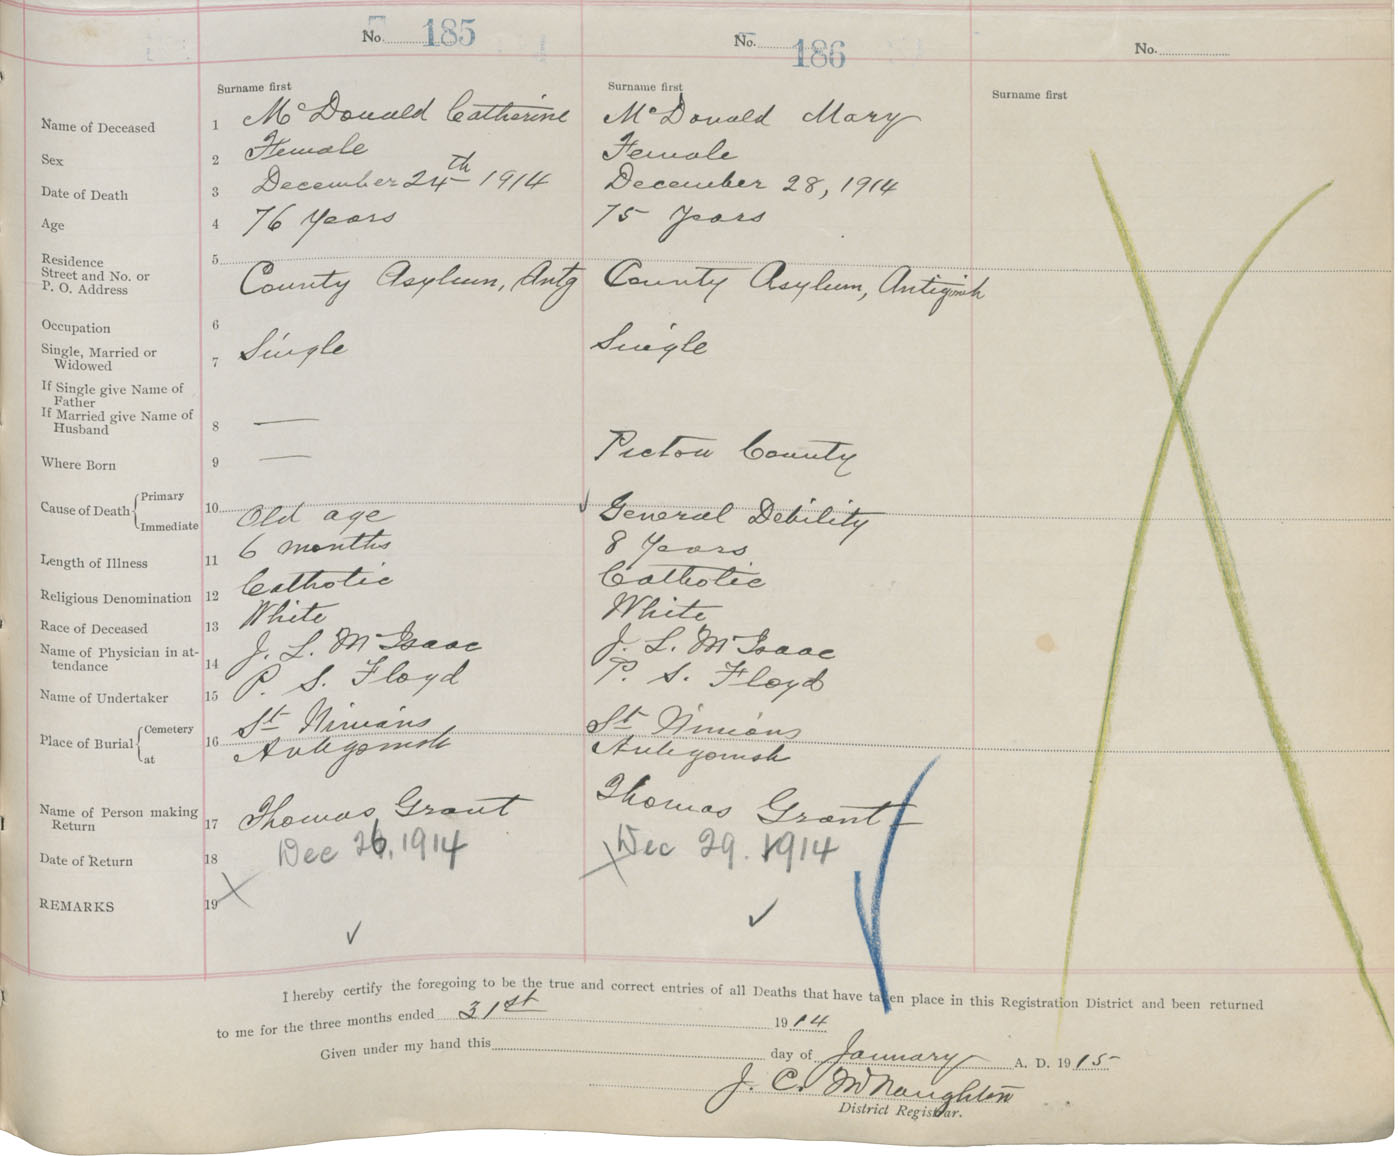 No. 185
No. 186
No.
Surname first
Surname first
Surname first
Name of Deceased 1 McDonald Catherine McDonald Mary
Sex 2 Female Female
Date of Death 3 December 24th 1914 December 28, 1914
Age 4 76 Years 75 Years
Residence 5
Street and No. or
P. O. Address County Asylum, Antg County Asylum, Antigonish
Occupation 6
Single, Married or
Widowed 7 Single Single
If Single give Name of
Father
If Married give Name of
Husband 8 —
Where Born 9 — Pictou County
Cause of Death { Primary
Immediate 10 Old age General Debility
Length of Illness 11 6 months 8 Years
Religious Denomination 12 Catholic Catholic
Race of Deceased 13 White White
Name of Physician in at-
tendance 14 J. L. McIsaac J. L. McIsaac
Name of Undertaker 15 P. S. Floyd P. S. Floyd
Place of Burial { Cemetery 16 St Ninians St Ninians
at Antigonish Antigonish
Name of Person making
Return 17 Thomas Grant Thomas Grant
Date of Return 18 Dec 26, 1914 Dec 29. 1914
REMARKS 19
I hereby certify the foregoing to be the true and correct entries of all Deaths that have taken place in this Registration District and been returned
to me for the three months ended 31st 1914
Given under my hand this day of January A. D. 1915
J. C. McNaughton
District Registrar.